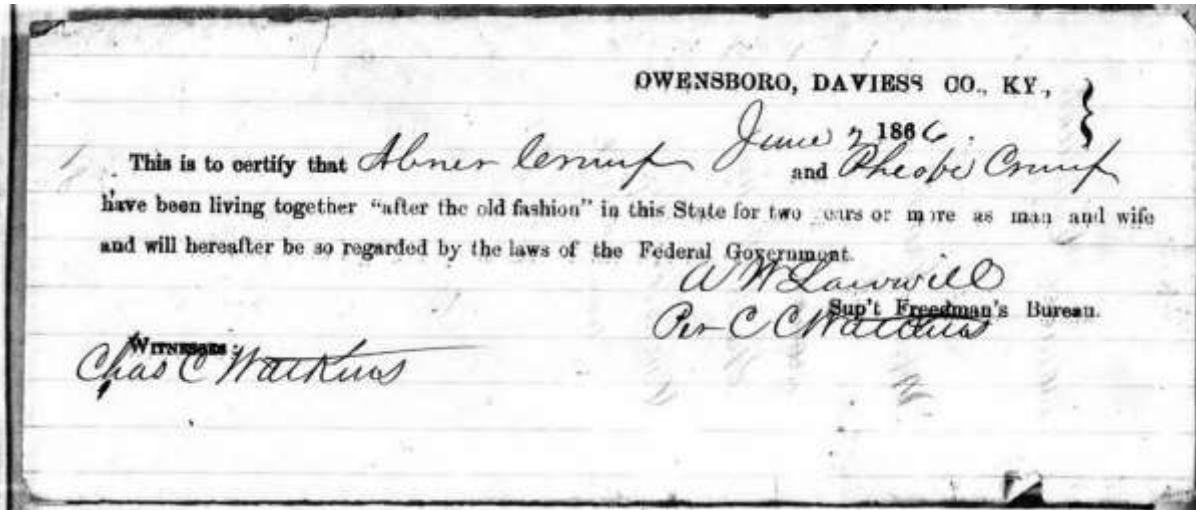 OWENSBORO, DAVIESS CO., KY.,
June 2 1866.
This is to certify that Abner Crump and Pheobe Crump
have been living together “after the old fashion” in this State for two years or more as man and wife
and will hereafter be so regarded by the laws of the Federal Government.
A W Lawwill
Sup't Freedman's Bureau.
Per C C Watkins
WITNESSES:
Chas C Watkins